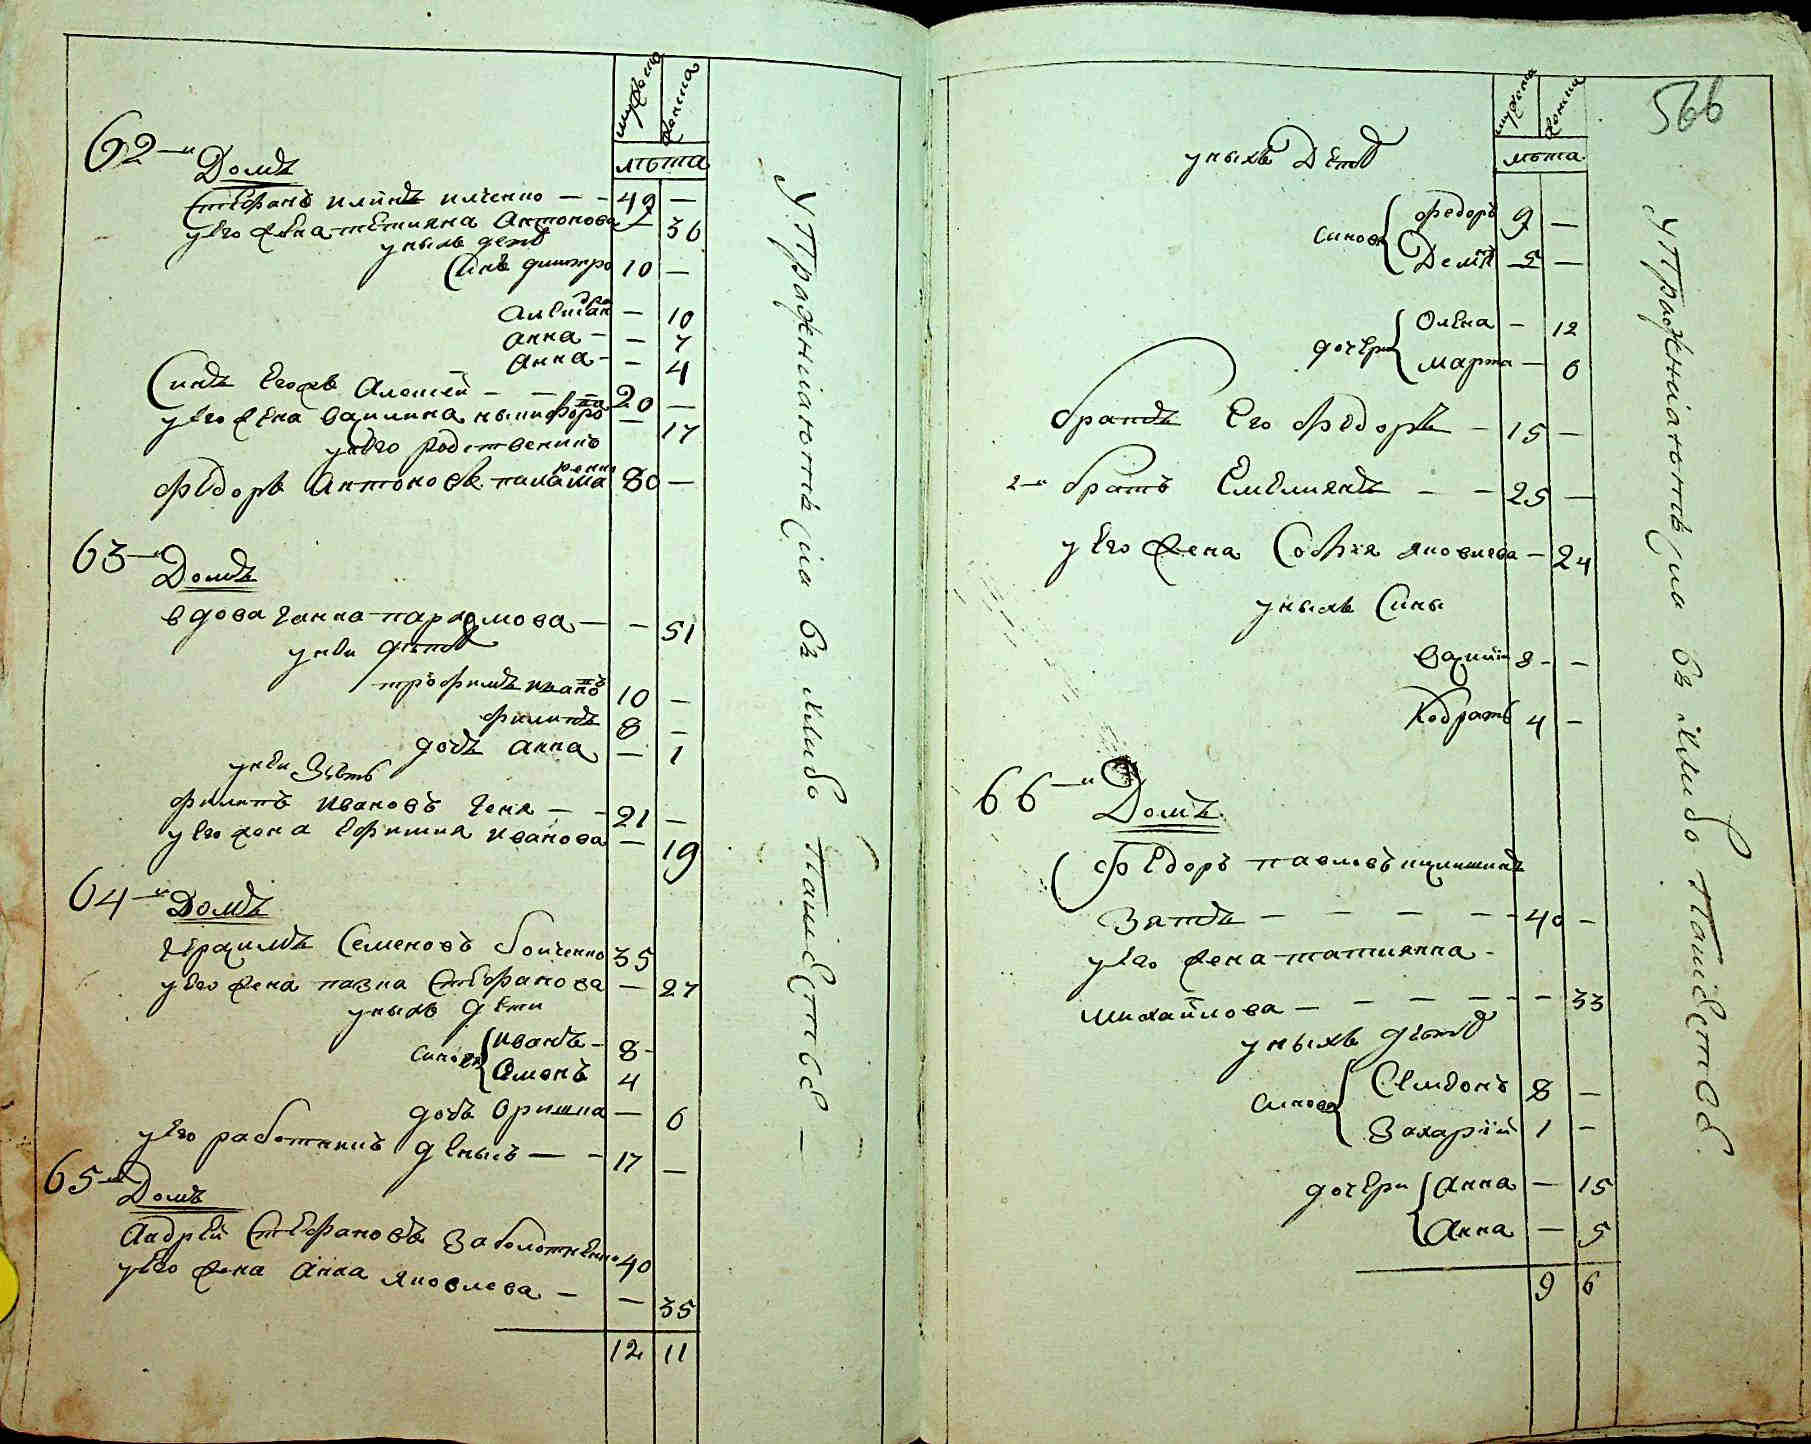 мужеска женска
лѣта
62-й Домъ
Стефанъ илинъ илченко — — 49 —
уего жена тетияна Антонова — 36
уныхъ дети
Синъ дмитро 10 —
Алексан̾дра — 10
анна — — 7
анна — — 4
Синъ Егожъ Алексей — — 20 —
уего жена василина никифорова — 17
уего родственикъ
Федоръ Антоновъ 80 —
63-й Домъ
вдова ганна пархомова — — 51
уней дети
трофимъ ивановъ 10 —
филипъ 8 —
дочь анна — 1
уней Зять
филипъ Ивановъ — — 21 —
уего жена Ефимия Иванова — 19
64-й Домъ
Герасимъ Семеновъ бойченко 35
уего жена Стефанова — 27
уныхъ дети
Синовя Иванъ — 8 —
Симонъ 4
дочь Оришка — 6
уего работникъ — — 17 —
65-й Домъ
Андрей Стефановъ Заболотненко 40
уего жена Анна Яковлева — — 35
12 11
Упражнiаютсiа въ хлибо пашестве —
566
мужеска женска
лѣта
уныхъ Дети
Синовя Федоръ 9 —
Демид̾ 5 —
дочери Олена — 12
Марта — 6
братъ Его Федоръ — 15 —
2-й братъ Емелиянъ — — 25 —
уего жена София яковлева — 24
уныхъ Сины
Василий 8 — —
Кодратъ 4 —
66-й Домъ
Федоръ павловъ
Зятъ — — — — 40 —
уего жена татиянна —
михайлова — — — — — 33
уныхъ дети
Синовя Семионъ 8 —
Захарий 1 —
дочери Анна — 15
Анна — 5
9 6
Упражнiаютсiа въ хлибо пашестве.